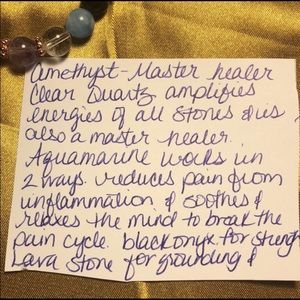 Amethyst - Master healer
Clear Quartz amplifies
energies of all stones &is
also a master healer.
Aquamarine works in
2 ways. reduces pain from
inflammation & soothes &
relaxes the mind to break the
pain cycle. black onyx for strength
Lava Stone for grounding &